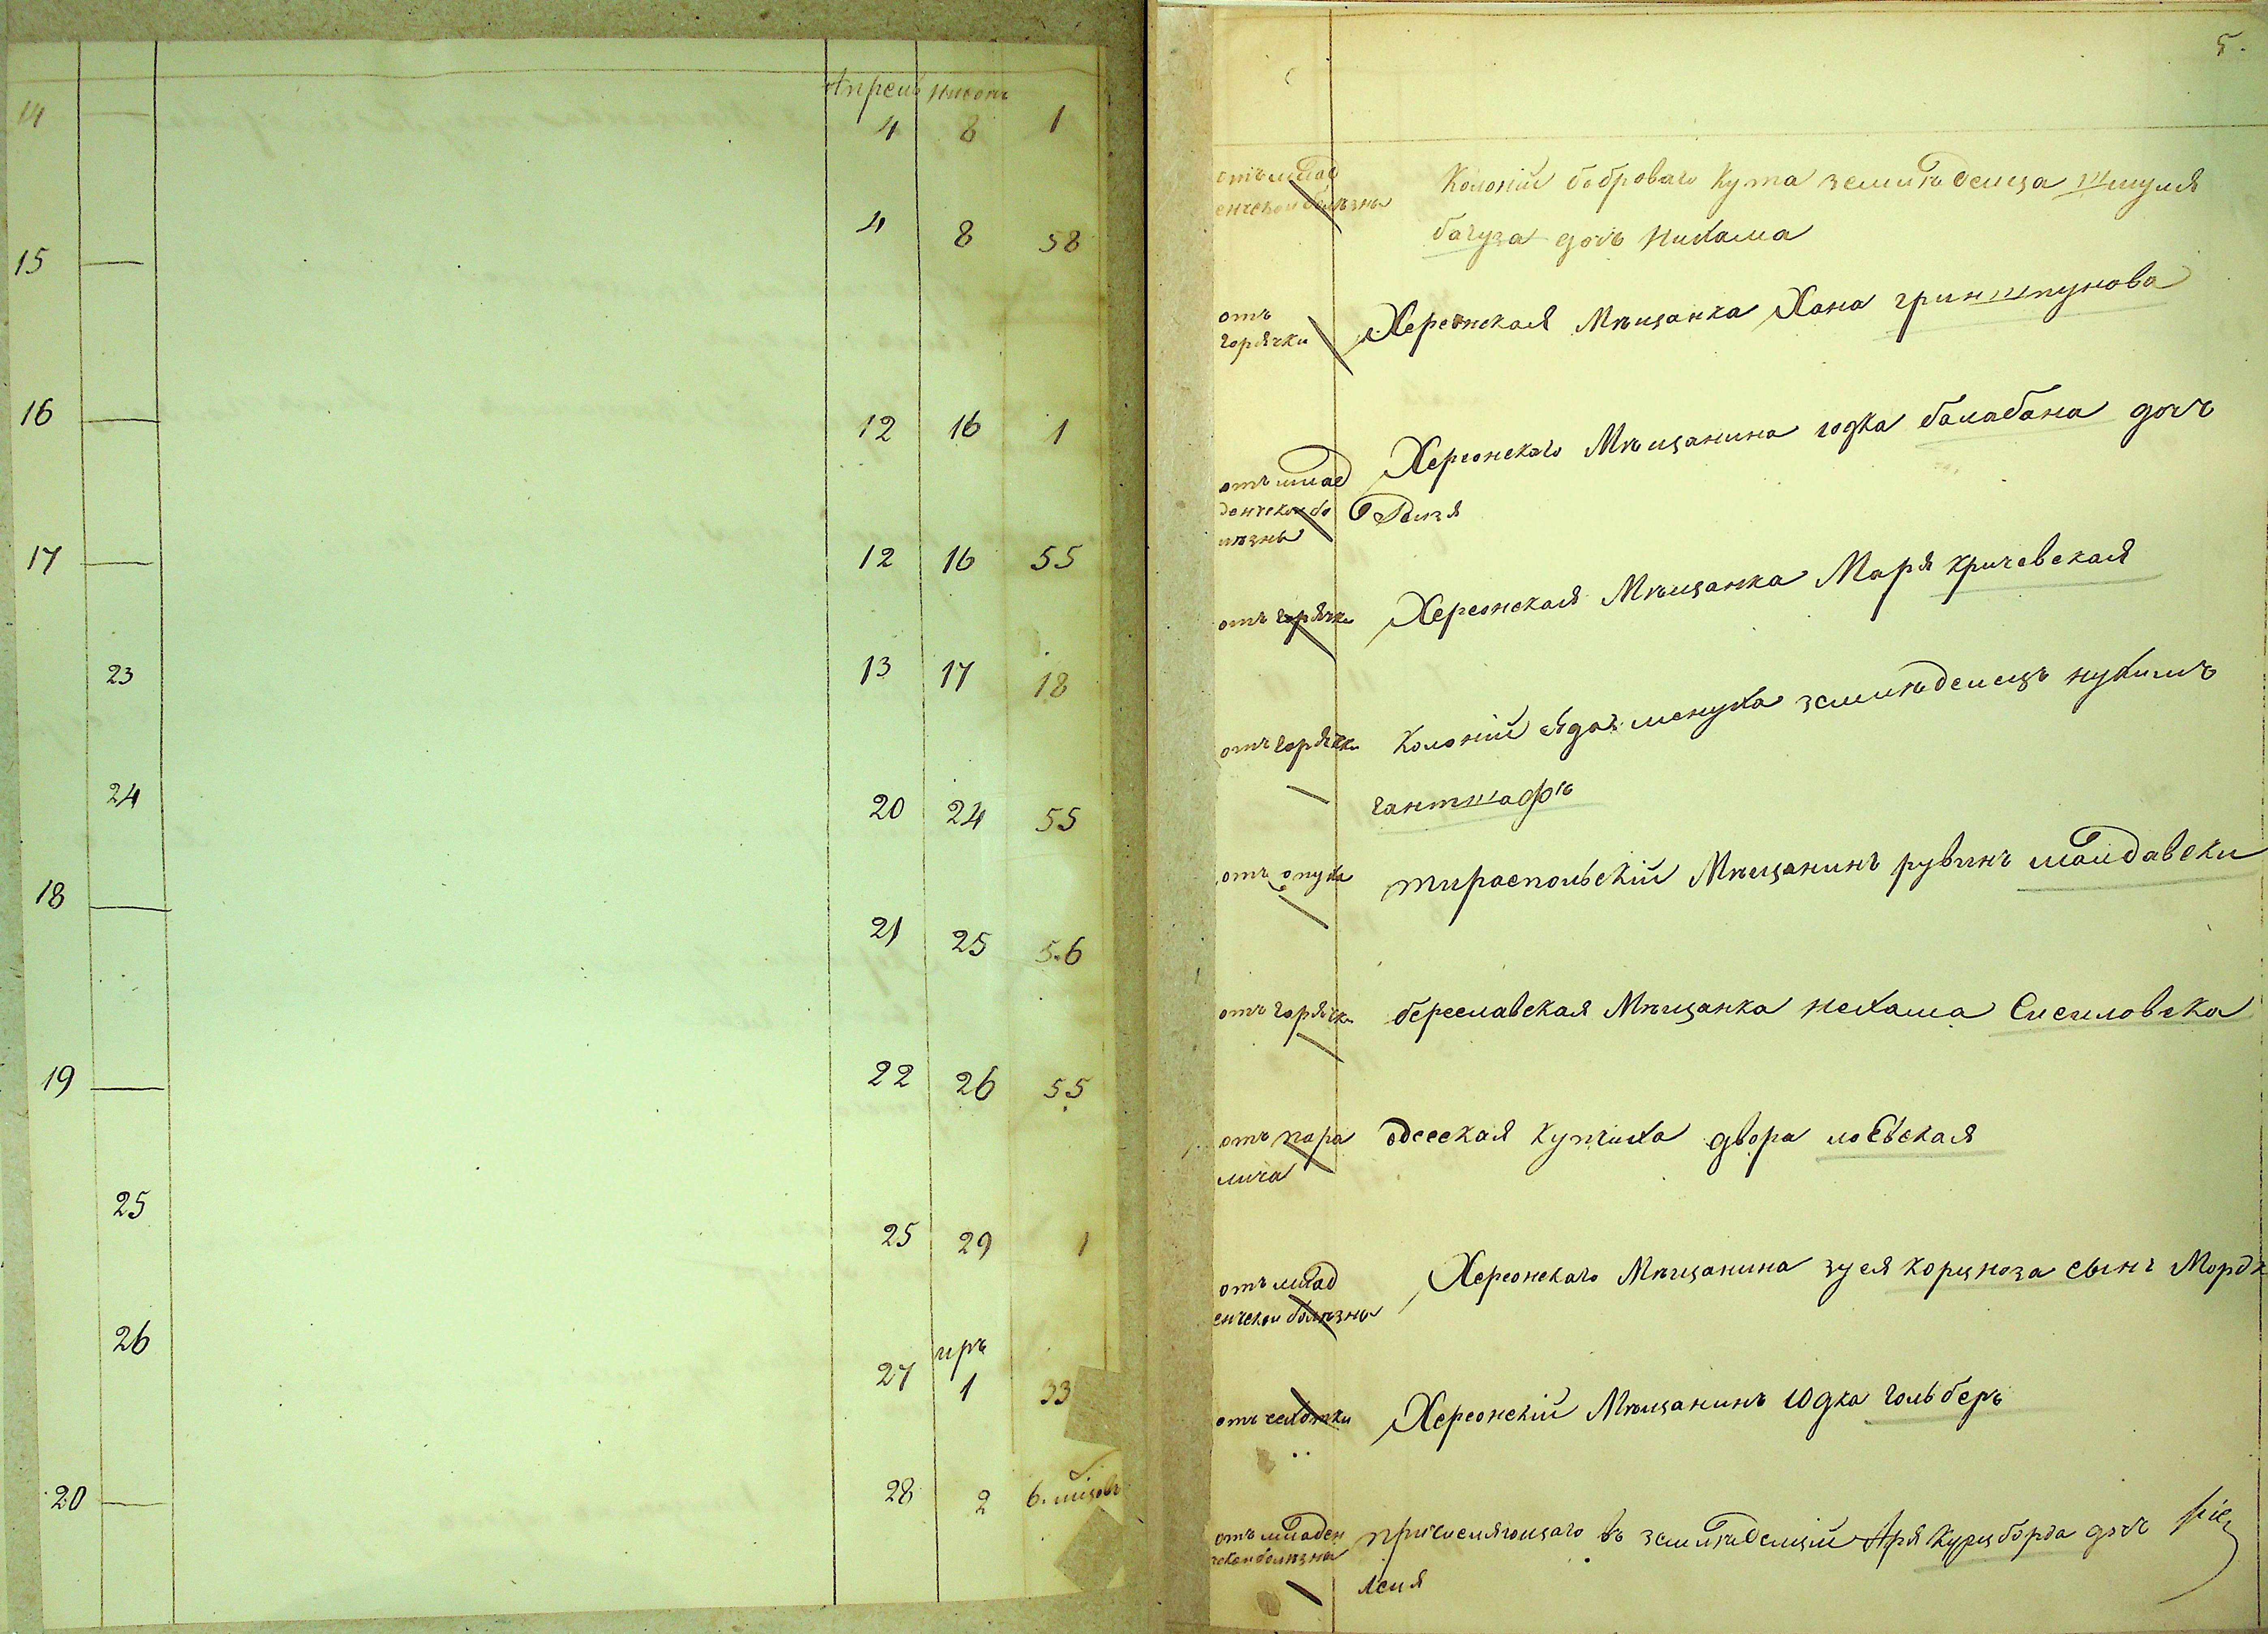 Апрель Нисонъ
14 — 4 8 1
15 — 4 8 58
16 — 12 16 1
17 — 12 16 55
23 13 17 18
24 20 24 55
18 — 21 25 56
19 — 22 26 55
25 25 29 1
иръ
26 27 1 33
20 — 28 2 6. мѣсовъ
5.
отъ млад
енческой болѣзны
Колоніи бобровагo Кута земледѣлца Шмуля
багуза дочъ Нихама
отъ
горячки
Херсонская Мѣщанка Хана гринштунова
Херсонскаго Мѣщанина юдка балабана дочъ
отъ млад
денческой бо
лѣзны
Рейзя
отъ горячки
Херсонская Мѣщанка Маря кричевская
отъ горячки
Колоніи сѣдаг менуха земледѣлецъ нухимъ
гантшафъ
отъ опуха
тираспольскій Мѣщанинъ рувинъ молдавски
отъ горячки
береславская Мѣщанка нехама Сисиловска
отъ пара
лича
одесская купчиха двора лоевская
отъ млад
енческой болѣзны
Херсонскаго Мѣщанина зуся корцноза сынъ Мордк
отъ сухотки
Херсонскій Мѣщанинъ Юдка гольберъ
отъ младен
ческой болѣзны
причисляющаго въ земледѣлцй Аря Курцборда дочъ
лея